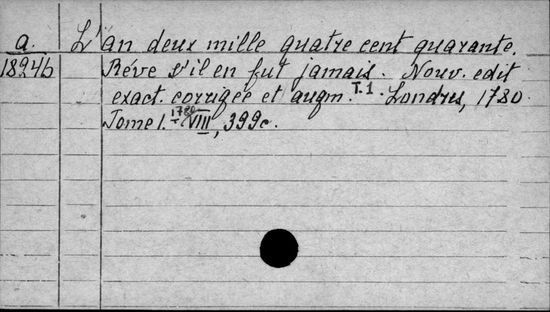 a. L'an deux mille quatre cent quarante.
18246 Rêve s'il en fut jamais. Nouv. edit
exact. corrigée et augm. T.1. Londres, 1780
Tome I. 1780 VIII, 399 c.